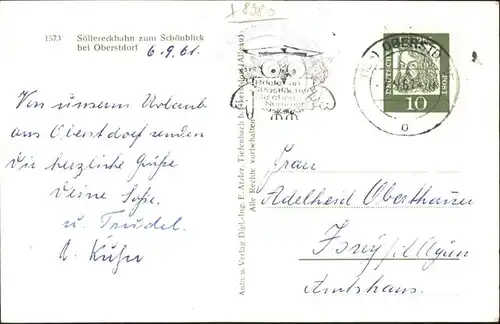 1573 Söllereckbahn zum Schönblick
bei Oberstdorf
6.9.61.
+8980
Von unserm Urlaub
aus Oberstdorf senden
Dir herzliche Grüße
Deine Sofie
u. Trudel.
A. Kuhn
Auto u. Verlag Dipl.-Ing. E. Atzler, Tiefenbach b. Oberstdorf (Allgäu).
Alle Rechte vorbehalten
OBERSTD
DEUTSCHE
POST
10
Frau
Adelheid Oberthanner
Isny i. Allgäu
Amtshaus.